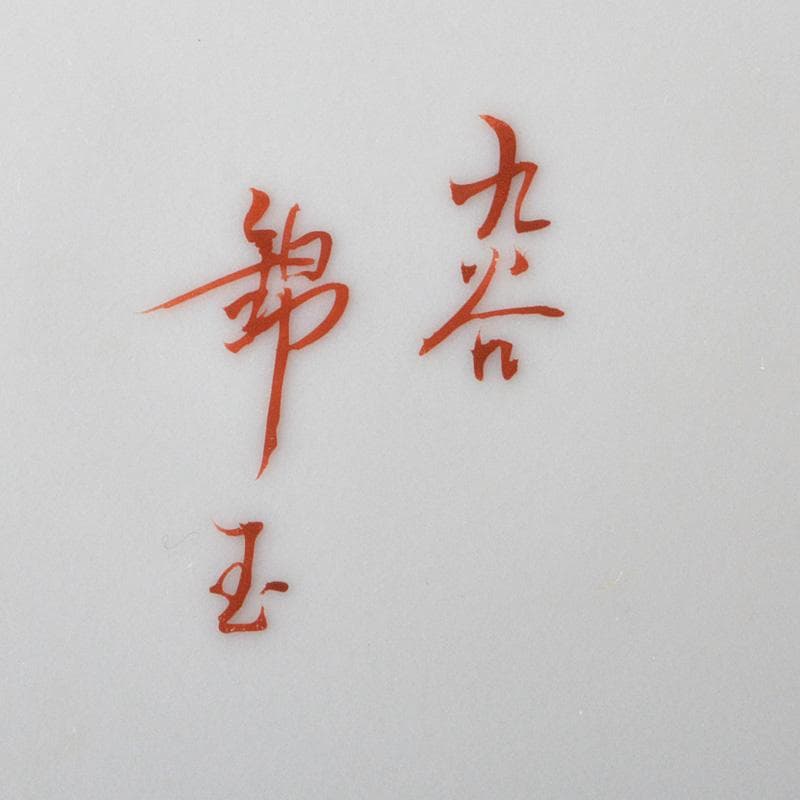 九谷
錦玉